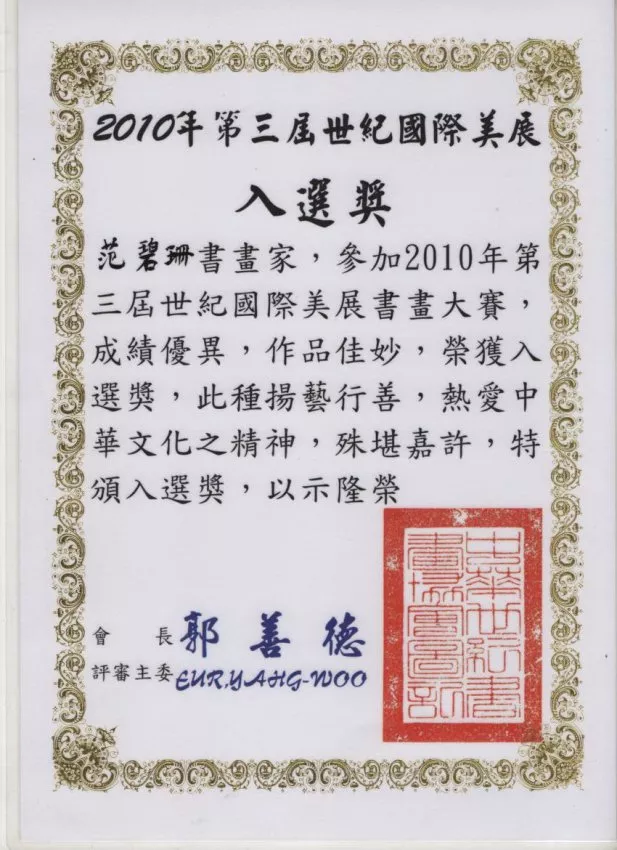 2010年第三屆世紀國際美展
入選獎
范碧珊書畫家，參加2010年第
三屆世紀國際美展書畫大賽，
成績優異，作品佳妙，榮獲入
選獎，此種揚藝行善，熱愛中
華文化之精神，殊堪嘉許，特
頒入選獎，以示隆榮
會 長 郭善德
評審主委 EUR,YAHG-WOO